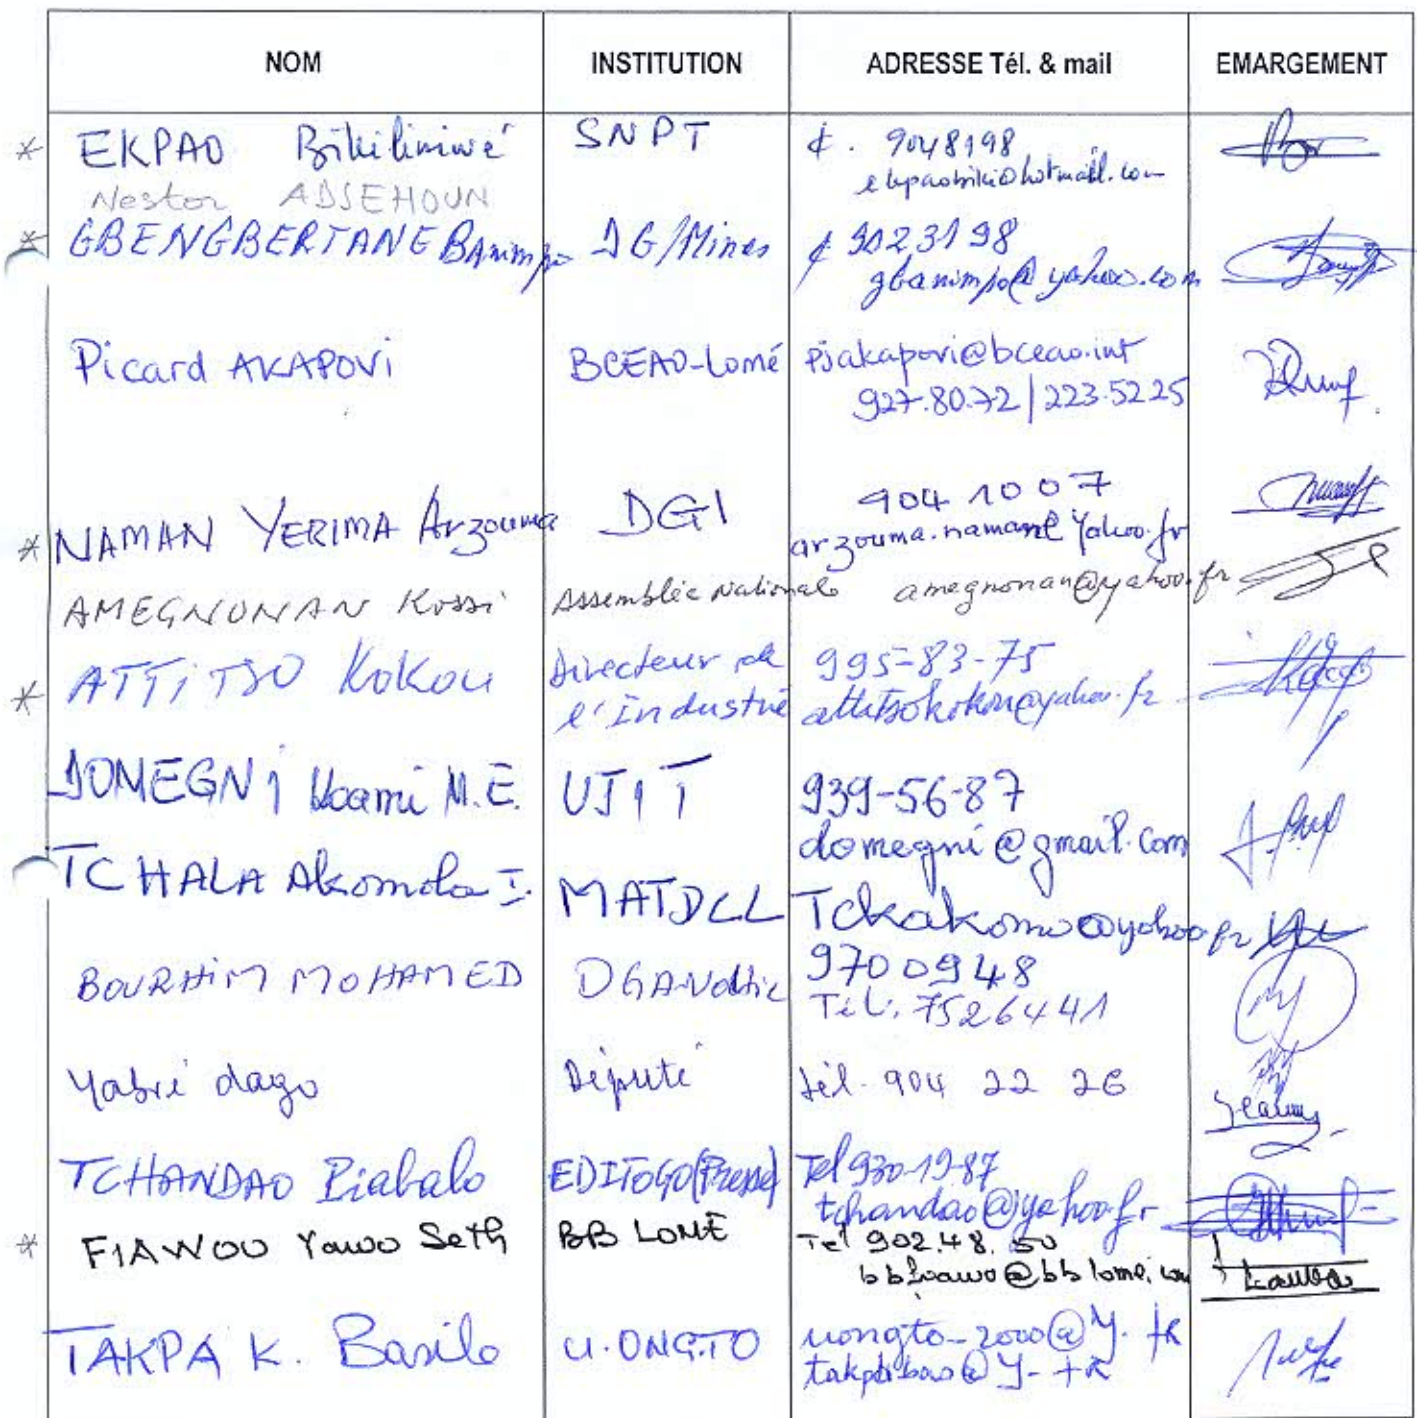 NOM INSTITUTION ADRESSE Tél. & mail EMARGEMENT
* EKPAO Bikiliniwé SNPT 9048198
ekpaobiki@hotmail.com
Nestor ADJEHOUN
* GBENGBERTANE Banimpo DG/Mines 9023198
gbanimpo@yahoo.com
Picard AKAPOVI BCEAO-Lomé pjakapovi@bceao.int
927.80.72 | 223.52.25
* NAMAN YERIMA Arzouma DGI 904 10 07
arzouma.naman@yahoo.fr
AMEGNONAN Kossi Assemblée Nationale amegnonan@yahoo.fr
* ATTITSO Kokou Directeur de 995-83-75
l'Industrie attitsokokou@yahoo.fr
DOMEGNI Koami M.E. UJIT 939-56-87
domegni@gmail.com
TCHALA Akomola I. MATDCL Tckakomo@yahoo.fr
9700948
BOURHIM MOHAMED Tél. 7526441
Yabré dago Député tél. 904 22 26
TCHANDAO Piabalo EDITOGO (Presse) Tel 930-19-87
tchandao@yahoo.fr
* FIAWOO Yawo Seth BB LOMÉ Tel 902.48.50
TAKPA K. Basile U.ONGTO uongto_2000@y.fr